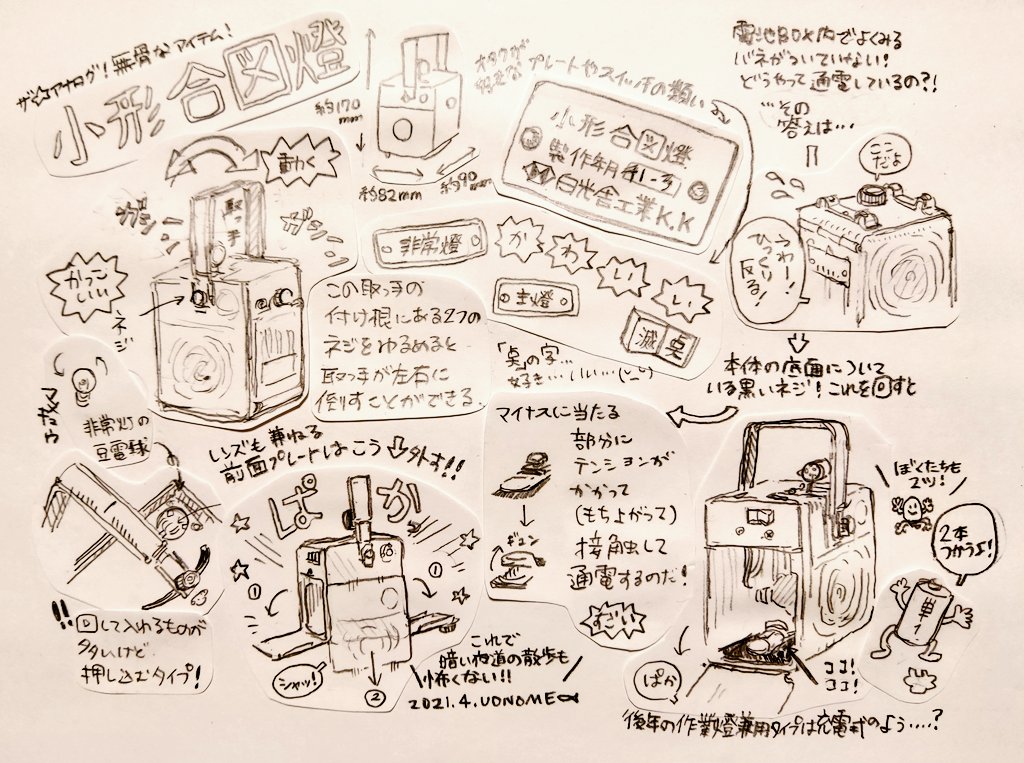 ザ☆アナログ!無骨なアイテム!
小形合図燈
約170
mm
約82mm
約90
mm
オタクが
好きな
プレートやスイッチの類い
小形合図燈
製作年月
白光舎工業K.K
電池BOX内でよくみる
バネがついていない!
どうやって通電しているの?!
…その
答えは…
ここ
だよ
うわー!
ひっくり
反る!
動く
取っ手
ガシーン
ガシーン
かっこ
いい
ネジ
非常燈
かわいい
主燈
滅
臭
「臭」の字…
好き…いい…
この取っ手の
付け根にある2つの
ネジをゆるめると
取っ手が左右に
倒すことができる.
本体の底面について
いる黒いネジ!これを回すと
マメデンキュウ
非常灯の
豆電球
!!回して入れるものが
多いけど
押し込むタイプ!
レンズも兼ねる
前面プレートはこう外す!!
ぱか
①
①
シャッ!
②
これで
暗い夜道の散歩も
怖くない!!
2021.4.UONOME
マイナスに当たる
部分に
テンションが
かかって
(もちよがって)
接触して
通電するのだ!
ギュン
すごい
ぼくたちも
2ツ!
2本
つかうよ!
単1
ココ!
ココ!
ぱか
後年の作業燈兼用タイプは充電式のよう....?